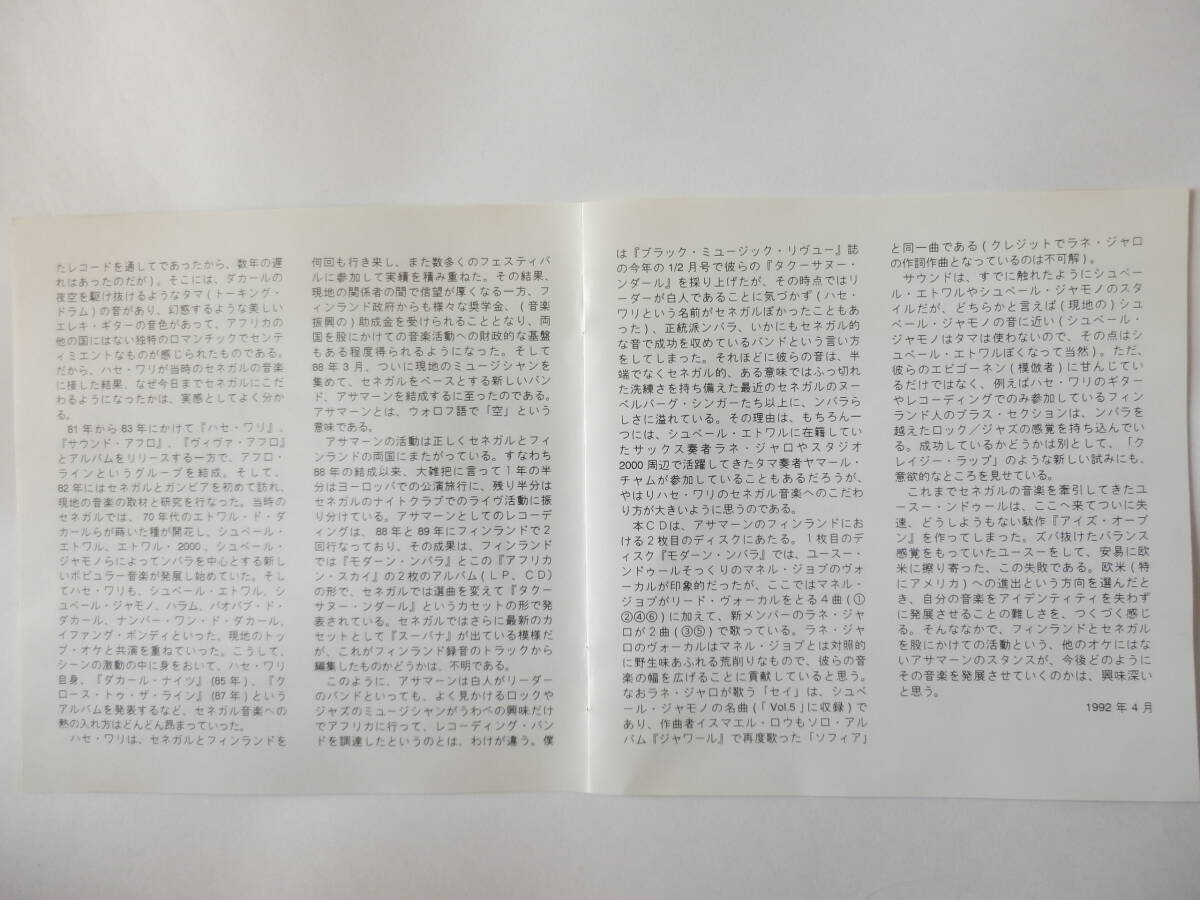 たレコードを通してであったから、数年の遅
れはあったのだが)。そこには、ダカールの
夜空を駆け抜けるようなタマ(トーキング・
ドラム)の音があり、幻惑するような美しい
エレキ・ギターの音色があって、アフリカの
他の国にはない独特のロマンチックでセンテ
ィミエントなものが感じられたものである。
だから、ハセ・ワリが当時のセネガルの音楽
に接した結果、なぜ今日までセネガルにこだ
わるようになったかは、実感としてよく分か
る。
81年から83年にかけて『ハセ・ワリ』、
『サウンド・アフロ』、『ヴィヴァ・アフロ』
とアルバムをリリースする一方で、アフロ・
ラインというグループを結成。そして、
82年にはセネガルとガンビアを初めて訪れ、
現地の音楽の取材と研究を行なった。当時の
セネガルでは、70年代のエトワル・ド・ダ
カールらが蒔いた種が開花し、シュペール・
エトワル、エトワル・2000、シュペール・
ジャモノらによってンバラを中心とする新し
いポピュラー音楽が発展し始めていた。そし
てハセ・ワリも、シュペール・エトワル、シ
ュペール・ジャモノ、ハラム、バオバブ・ド・
ダカール、ナンバー・ワン・ド・ダカール、
イファング・ボンディといった、現地のトッ
プ・オケと共演を重ねていった。こうして、
シーンの激動の中に身をおいて、ハセ・ワリ
自身、『ダカール・ナイツ』(85年)、『ク
ロース・トゥ・ザ・ライン』(87年)という
アルバムを発表するなど、セネガル音楽への
熱の入れ方はどんどん昂まっていった。
ハセ・ワリは、セネガルとフィンランドを
何回も行き来し、また数多くのフェスティバ
ルに参加して実績を積み重ねた。その結果、
現地の関係者の間で信望が厚くなる一方、フ
ィンランド政府からも様々な奨学金、(音楽
振興の)助成金を受けられることとなり、両
国を股にかけての音楽活動への財政的な基盤
もある程度得られるようになった。そして
88年3月、ついに現地のミュージシャンを
集めて、セネガルをベースとする新しいバン
ド、アサマーンを結成するに至ったのである。
アサマーンとは、ウォロフ語で「空」という
意味である。
アサマーンの活動は正しくセネガルとフィ
ンランドの両国にまたがっている。すなわち
88年の結成以来、大雑把に言って1年の半
分はヨーロッパでの公演旅行に、残り半分は
セネガルのナイトクラブでのライヴ活動に振
り分けている。アサマーンとしてのレコーデ
ィングは、88年と89年にフィンランドで2
回行なっており、その成果は、フィンランド
では『モダーン・ンバラ』とこの『アフリカ
ン・スカイ』の2枚のアルバム(LP、CD)
の形で、セネガルでは選曲を変えて『タクー
サヌー・ンダール』というカセットの形で発
表されている。セネガルではさらに最新のカ
セットとして『スーバナ』が出ている模様だ
が、これがフィンランド録音のトラックから
編集したものかどうかは、不明である。
このように、アサマーンは白人がリーダー
のバンドといっても、よく見かけるロックや
ジャズのミュージシャンがうわべの興味だけ
でアフリカに行って、レコーディング・バン
ドを調達したというのとは、わけが違う。僕
は『ブラック・ミュージック・リヴュー』誌
の今年の1/2月号で彼らの『タクーサヌー・
ンダール』を採り上げたが、その時点ではリ
ーダーが白人であることに気づかず(ハセ・
ワリという名前がセネガルぽかったこともあ
った)、正統派ンバラ、いかにもセネガル的
な音で成功を収めているバンドという言い方
をしてしまった。それほどに彼らの音は、半
端でなくセネガル的、ある意味ではふっ切れ
た洗練さを持ち備えた最近のセネガルのヌー
ベルバーグ・シンガーたち以上に、ンバラら
しさに溢れている。その理由は、もちろん一
つには、シュペール・エトワルに在籍してい
たサックス奏者ラネ・ジャロやスタジオ
2000周辺で活躍してきたタマ奏者ヤマール・
チャムが参加していることもあるだろうが、
やはりハセ・ワリのセネガル音楽へのこだわ
り方が大きいように思うのである。
本CDは、アサマーンのフィンランドにお
ける2枚目のディスクにあたる。1枚目のデ
ィスク『モダーン・ンバラ』では、ユースー・
ンドゥールそっくりのマネル・ジョブのヴォ
ーカルが印象的だったが、ここではマネル・
ジョブがリード・ヴォーカルをとる4曲(①
②④⑥)に加えて、新メンバーのラネ・ジャ
ロが2曲(③⑤)で歌っている。ラネ・ジャ
ロのヴォーカルはマネル・ジョブとは対照的
に野生味あふれる荒削りなもので、彼らの音
楽の幅を広げることに貢献していると思う。
なおラネ・ジャロが歌う「セイ」は、シュペ
ール・ジャモノの名曲(「Vol.5」に収録)で
あり、作曲者イスマエル・ロウもソロ・アル
バム『ジャワール』で再度歌った「ソフィア」
と同一曲である(クレジットでラネ・ジャロ
の作詞作曲となっているのは不可解)。
サウンドは、すでに触れたようにシュペー
ル・エトワルやシュペール・ジャモノのスタ
イルだが、どちらかと言えば(現地の)シュ
ペール・ジャモノの音に近い(シュペール・
ジャモノはタマは使わないので、その点はシ
ュペール・エトワルぽくなって当然)。ただ、
彼らのエピゴーネン(模倣者)に甘んじてい
るだけではなく、例えばハセ・ワリのギター
やレコーディングでのみ参加しているフィン
ランド人のブラス・セクションは、ンバラを
越えたロック/ジャズの感覚を持ち込んでい
る。成功しているかどうかは別として、「ク
レイジー・ラップ」のような新しい試みにも、
意欲的なところを見せている。
これまでセネガルの音楽を牽引してきたユ
ースー・ンドゥールは、ここへ来てついに失
速、どうしようもない駄作『アイズ・オープ
ン』を作ってしまった。ズバ抜けたバランス
感覚をもっていたユースーをして、安易に欧
米に擦り寄った、この失敗である。欧米(特
にアメリカ)への進出という方向を選んだと
き、自分の音楽をアイデンティティを失わず
に発展させることの難しさを、つくづく感じ
る。そんななかで、フィンランドとセネガル
を股にかけての活動という、他のオケにはな
いアサマーンのスタンスが、今後どのように
その音楽を発展させていくのかは、興味深い
と思う。
1992年4月